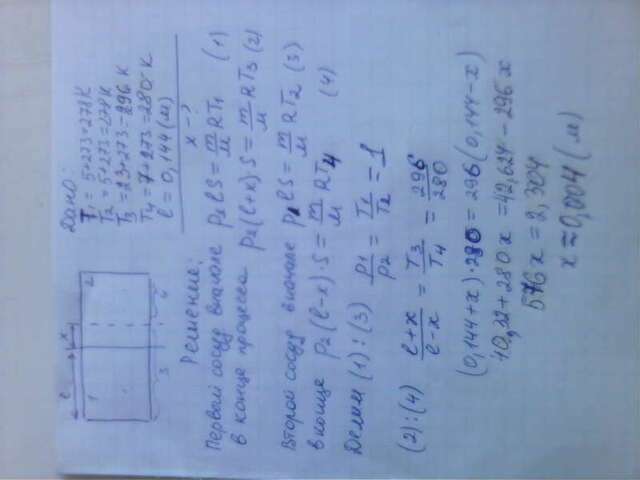 Дано:
T₁ = 5+273=278K
T₂ = 5+273=278K
T₃ = 23+273=296 K
T₄ = 7+273=280 K
ℓ = 0,144 (м)
x - ?
ℓ x
1 2
3 4
Решение:
Первый сосуд вначале p₁ℓS = m/M RT₁ (1)
в конце процесса p₂(ℓ+x)S = m/M RT₃ (2)
Второй сосуд вначале p₁ℓS = m/M RT₂ (3)
в конце p₂(ℓ-x)·S = m/M RT₄ (4)
Делим (1):(3) p1/p2 = T1/T2 = 1
(2):(4) ℓ+x/ℓ-x = T3/T4 = 296/280
(0,144+x)·280 = 296(0,144-x)
40,32+280x = 42,624-296x
576x = 2,304
x ≈ 0,004 (м)